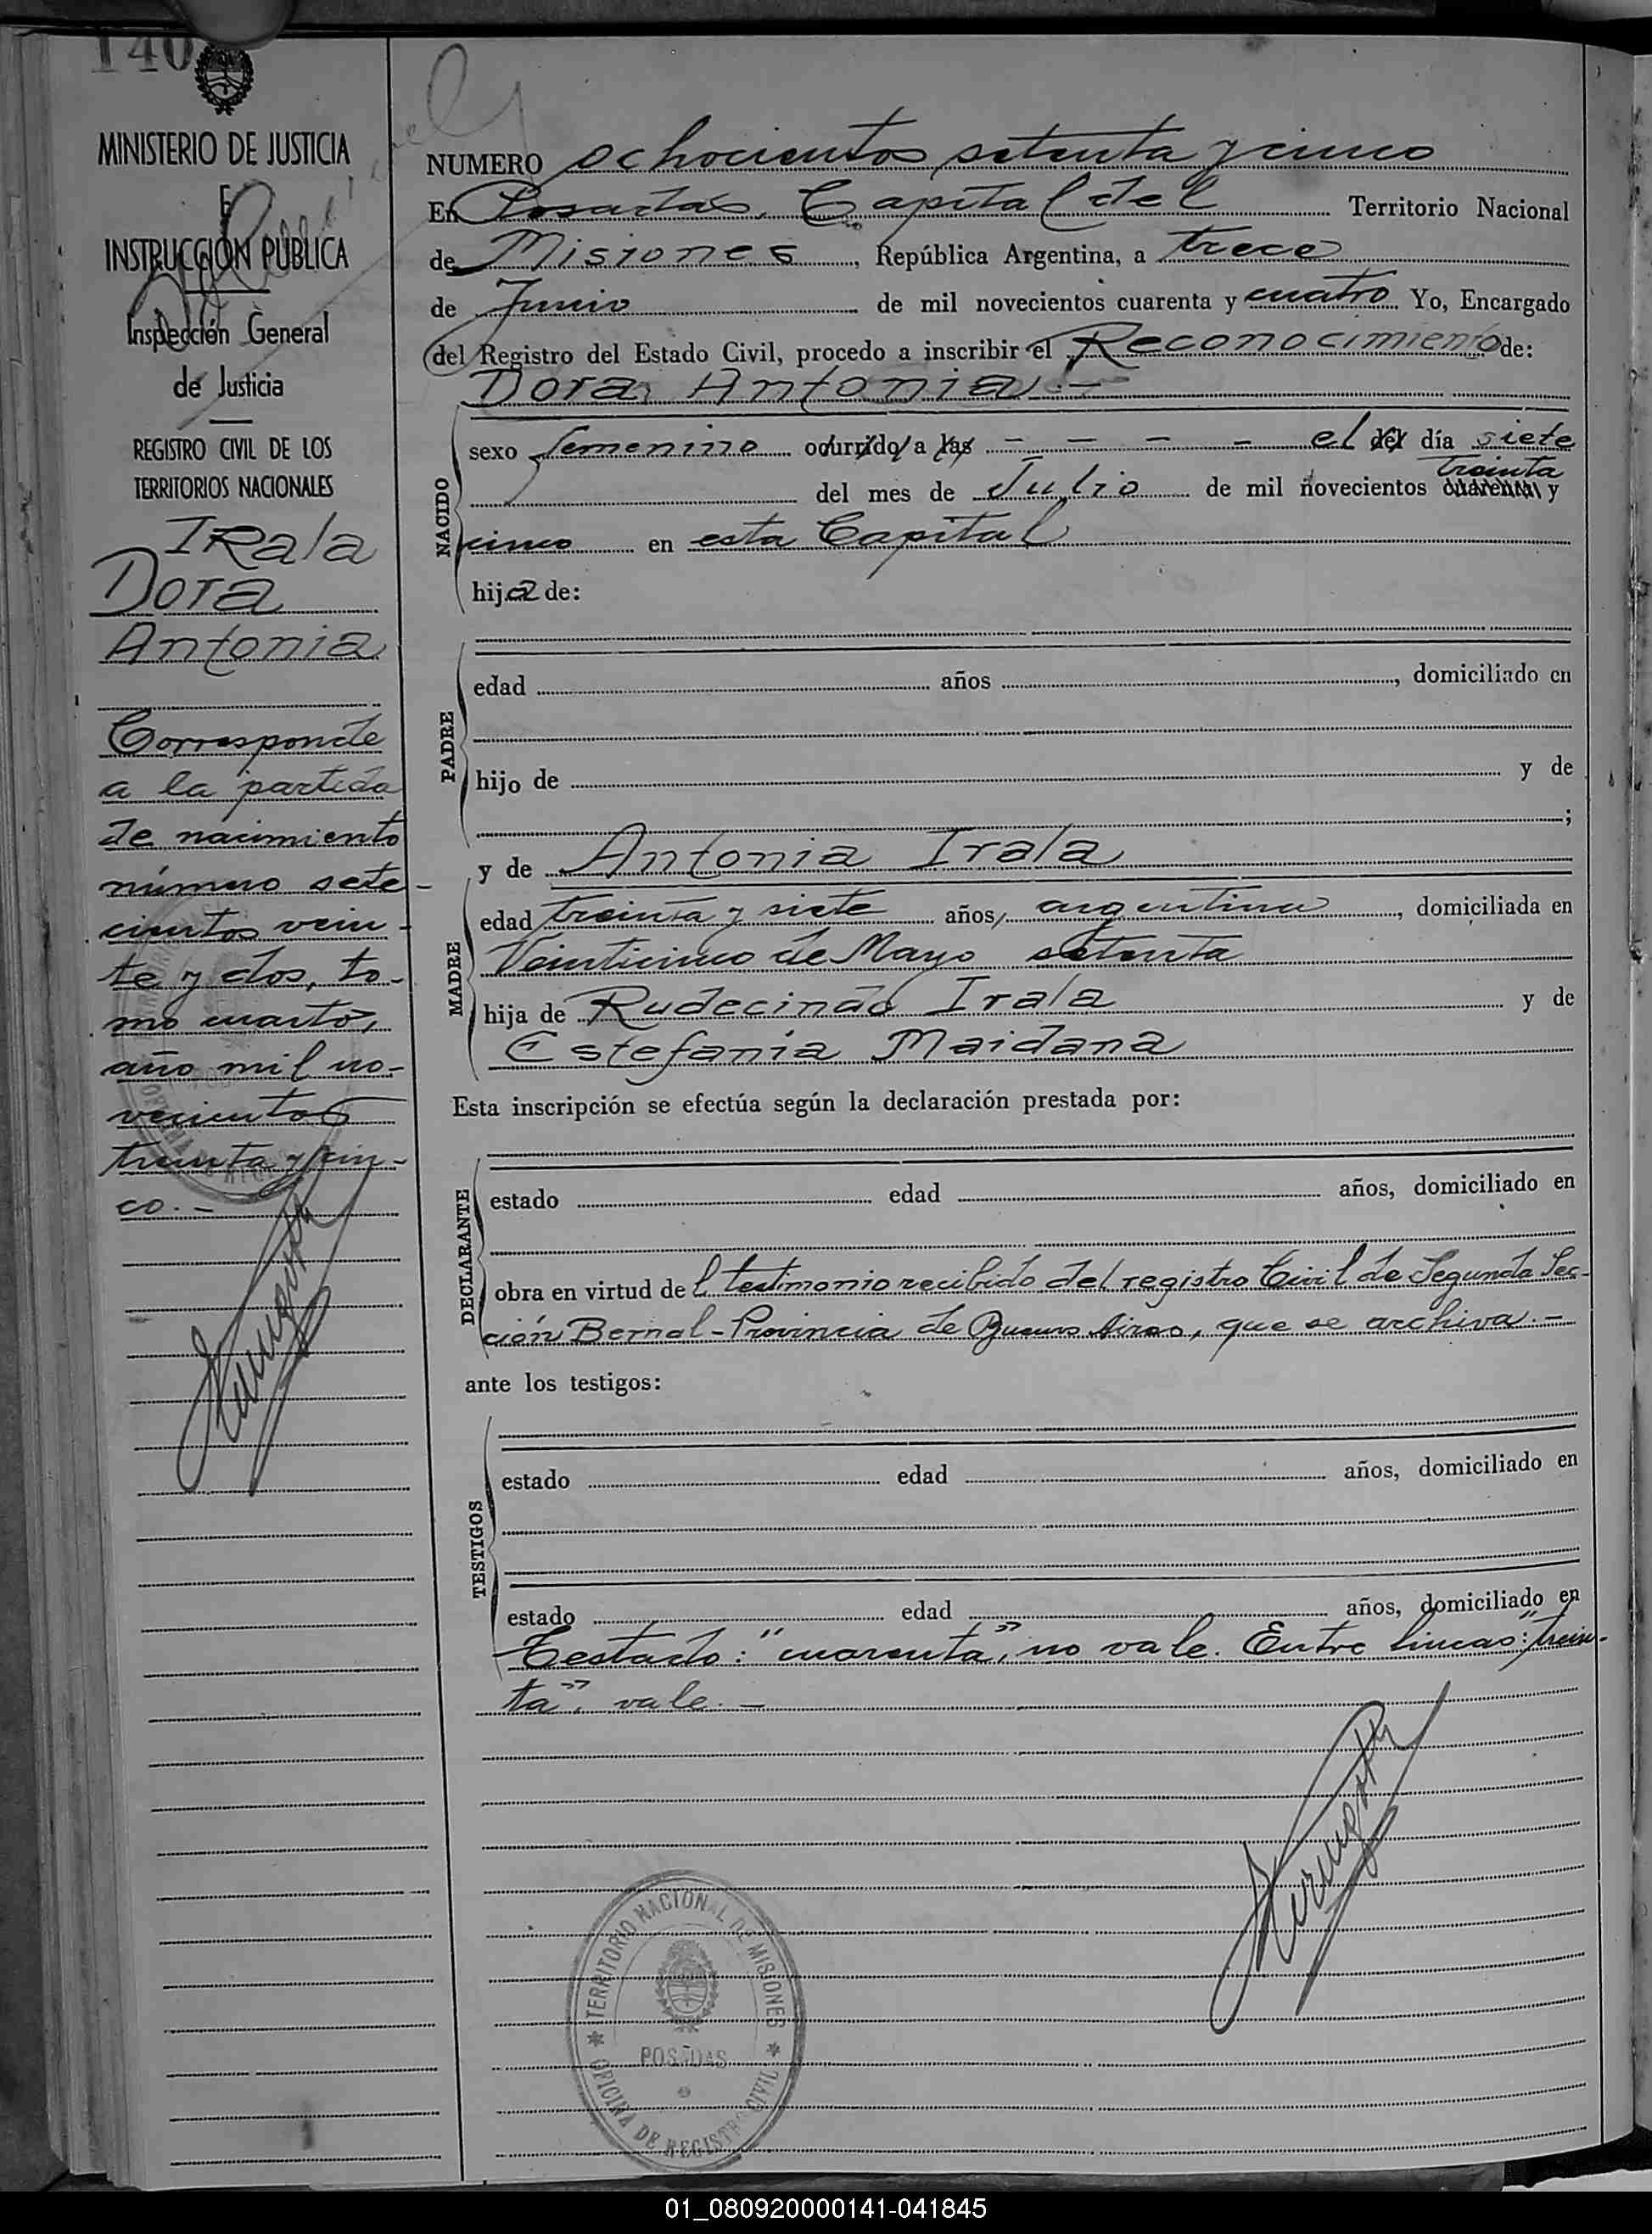 140
MINISTERIO DE JUSTICIA
E
INSTRUCCIÓN PÚBLICA
Inspección General
de Justicia
REGISTRO CIVIL DE LOS
TERRITORIOS NACIONALES
IRala
Dora
Antonia
Corresponde
a la partida
de nacimiento
número sete-
cientos vein-
te y dos, to-
mo cuarto,
año mil no-
vecientos
treinta y cin-
co.-
NUMERO ochocientos setenta y cinco
En Posadas, Capital del Territorio Nacional
de Misiones, República Argentina, a trece
de Junio de mil novecientos cuarenta y cuatro Yo, Encargado
del Registro del Estado Civil, procedo a inscribir el Reconocimiento de:
Dora Antonia.-
NACIDO
sexo femenino ocurrido a las - - - - el del día siete
treinta
del mes de Julio de mil novecientos cuarenta y
cinco en esta Capital
hija de:
PADRE
edad años , domiciliado en
hijo de y de
;
y de Antonia Irala
MADRE
edad treinta y siete años, argentina, domiciliada en
Veinticinco de Mayo setenta
hija de Rudecindo Irala y de
Estefania Maidana
Esta inscripción se efectúa según la declaración prestada por:
DECLARANTE
estado edad años, domiciliado en
obra en virtud del testimonio recibido del registro Civil de Segunda Sec-
ción Bernal-Provincia de Buenos Aires, que se archiva.-
ante los testigos:
TESTIGOS
estado edad años, domiciliado en
estado edad años, domiciliado en
Testado: "cuarenta", no vale. Entre lineas: "trein-
ta", vale.-
TERRITORIO NACIONAL DE MISIONES
POSADAS
OFICINA DE REGISTRO CIVIL
01_080920000141-041845